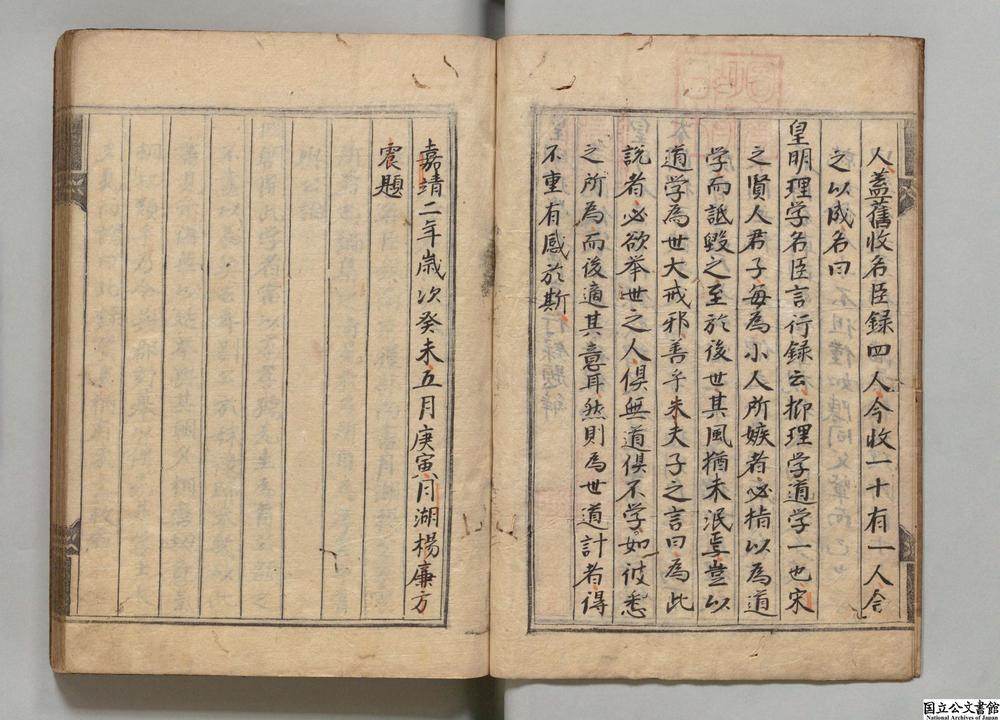 人蓋舊收名臣録四人今收一十有一人合
之以成名曰
皇明理学名臣言行録云抑理学道学一也宋
之賢人君子每為小人所嫉者必指以為道
学而詆毀之至於後世其風猶未泯焉豈以
道学為世大戒邪善乎朱夫子之言曰為此
說者必欲举世之人俱無道俱不学如彼悉
之所為而後適其意耳然則為世道計者得
不重有感於斯
嘉靖二年歲次癸未五月庚寅月湖楊廉方
震題
国立公文書館
National Archives of Japan